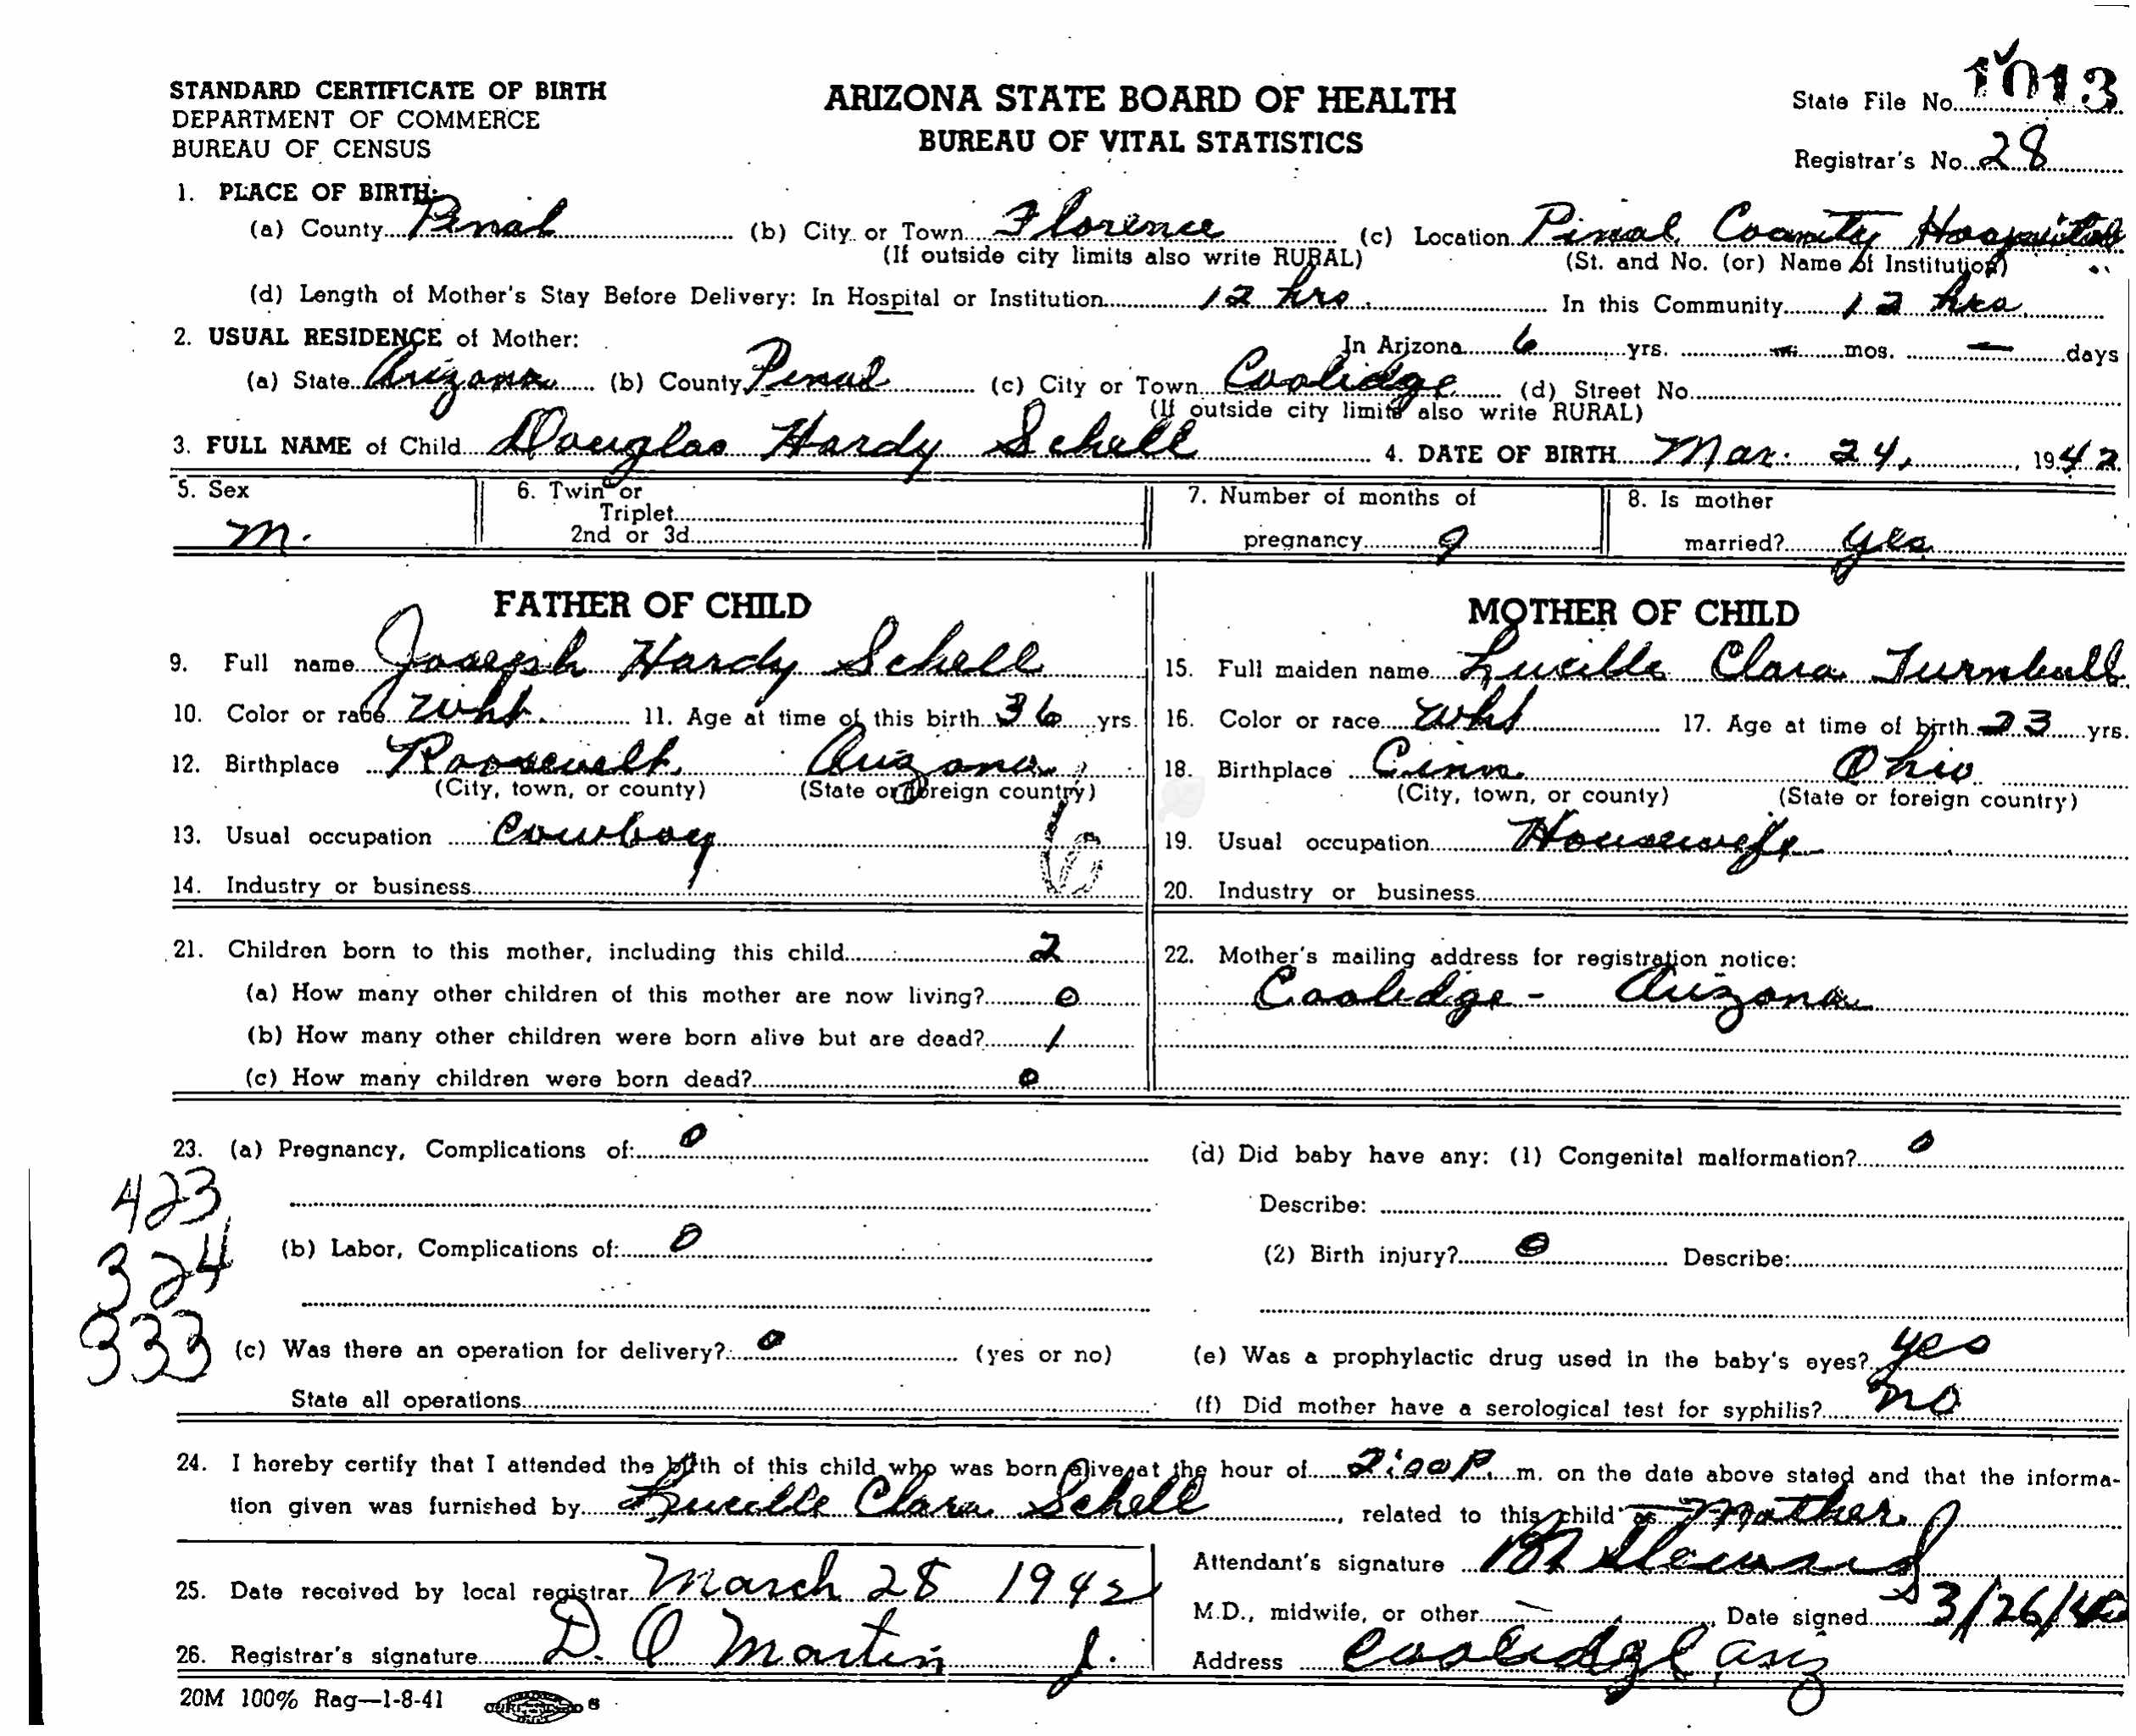 STANDARD CERTIFICATE OF BIRTH
DEPARTMENT OF COMMERCE
BUREAU OF CENSUS
ARIZONA STATE BOARD OF HEALTH
BUREAU OF VITAL STATISTICS
State File No. 1013
Registrar's No. 28
1. PLACE OF BIRTH:
(a) County Pinal (b) City or Town Florence (c) Location Pinal County Hospital
(If outside city limits also write RURAL) (St. and No. (or) Name of Institution)
(d) Length of Mother's Stay Before Delivery: In Hospital or Institution 12 hrs. In this Community 12 hrs
2. USUAL RESIDENCE of Mother: In Arizona 6 yrs. — mos. — days
(a) State Arizona (b) County Pinal (c) City or Town Coolidge (d) Street No.
(If outside city limits also write RURAL)
3. FULL NAME of Child Douglas Hardy Schell 4. DATE OF BIRTH Mar. 24, 1942
5. Sex 6. Twin or 7. Number of months of 8. Is mother
Triplet
M. 2nd or 3d pregnancy 9 married? yes
FATHER OF CHILD
9. Full name Joseph Hardy Schell
10. Color or race Wht. 11. Age at time of this birth 36 yrs.
12. Birthplace Roosevelt Arizona
(City, town, or county) (State or foreign country)
13. Usual occupation Cowboy
14. Industry or business
MOTHER OF CHILD
15. Full maiden name Lucille Clara Turnbull
16. Color or race Wht 17. Age at time of birth 23 yrs.
18. Birthplace Cinn. Ohio
(City, town, or county) (State or foreign country)
19. Usual occupation Housewife
20. Industry or business
21. Children born to this mother, including this child 2
(a) How many other children of this mother are now living? 0
(b) How many other children were born alive but are dead? 1
(c) How many children were born dead? 0
22. Mother's mailing address for registration notice:
Coolidge - Arizona
23. (a) Pregnancy, Complications of: 0
423
(b) Labor, Complications of: 0
324
333
(c) Was there an operation for delivery? 0 (yes or no)
State all operations
(d) Did baby have any: (1) Congenital malformation? 0
Describe:
(2) Birth injury? 0 Describe:
(e) Was a prophylactic drug used in the baby's eyes? yes
(f) Did mother have a serological test for syphilis? no
24. I hereby certify that I attended the birth of this child who was born alive at the hour of 2:00 P. m. on the date above stated and that the informa-
tion given was furnished by Lucille Clara Schell, related to this child as Mother
25. Date received by local registrar March 28 1942
26. Registrar's signature D. O Martin
Attendant's signature
M.D., midwife, or other — Date signed 3/26/42
Address Coolidge Ariz
20M 100% Rag—1-8-41